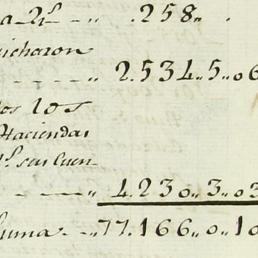 a 2l — „ .258„ .
icharon
— „ 2.534„5„06
os los
Haciendas
sus Cuen-
— — — „ 4.230„3„03
uma — „77.166„0„10